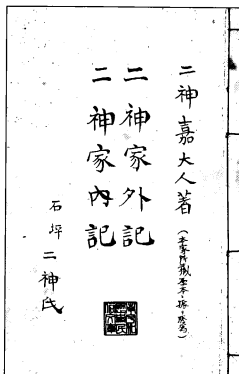 二神嘉大人著
二神家外記
二神家内記
石坪 二神氏